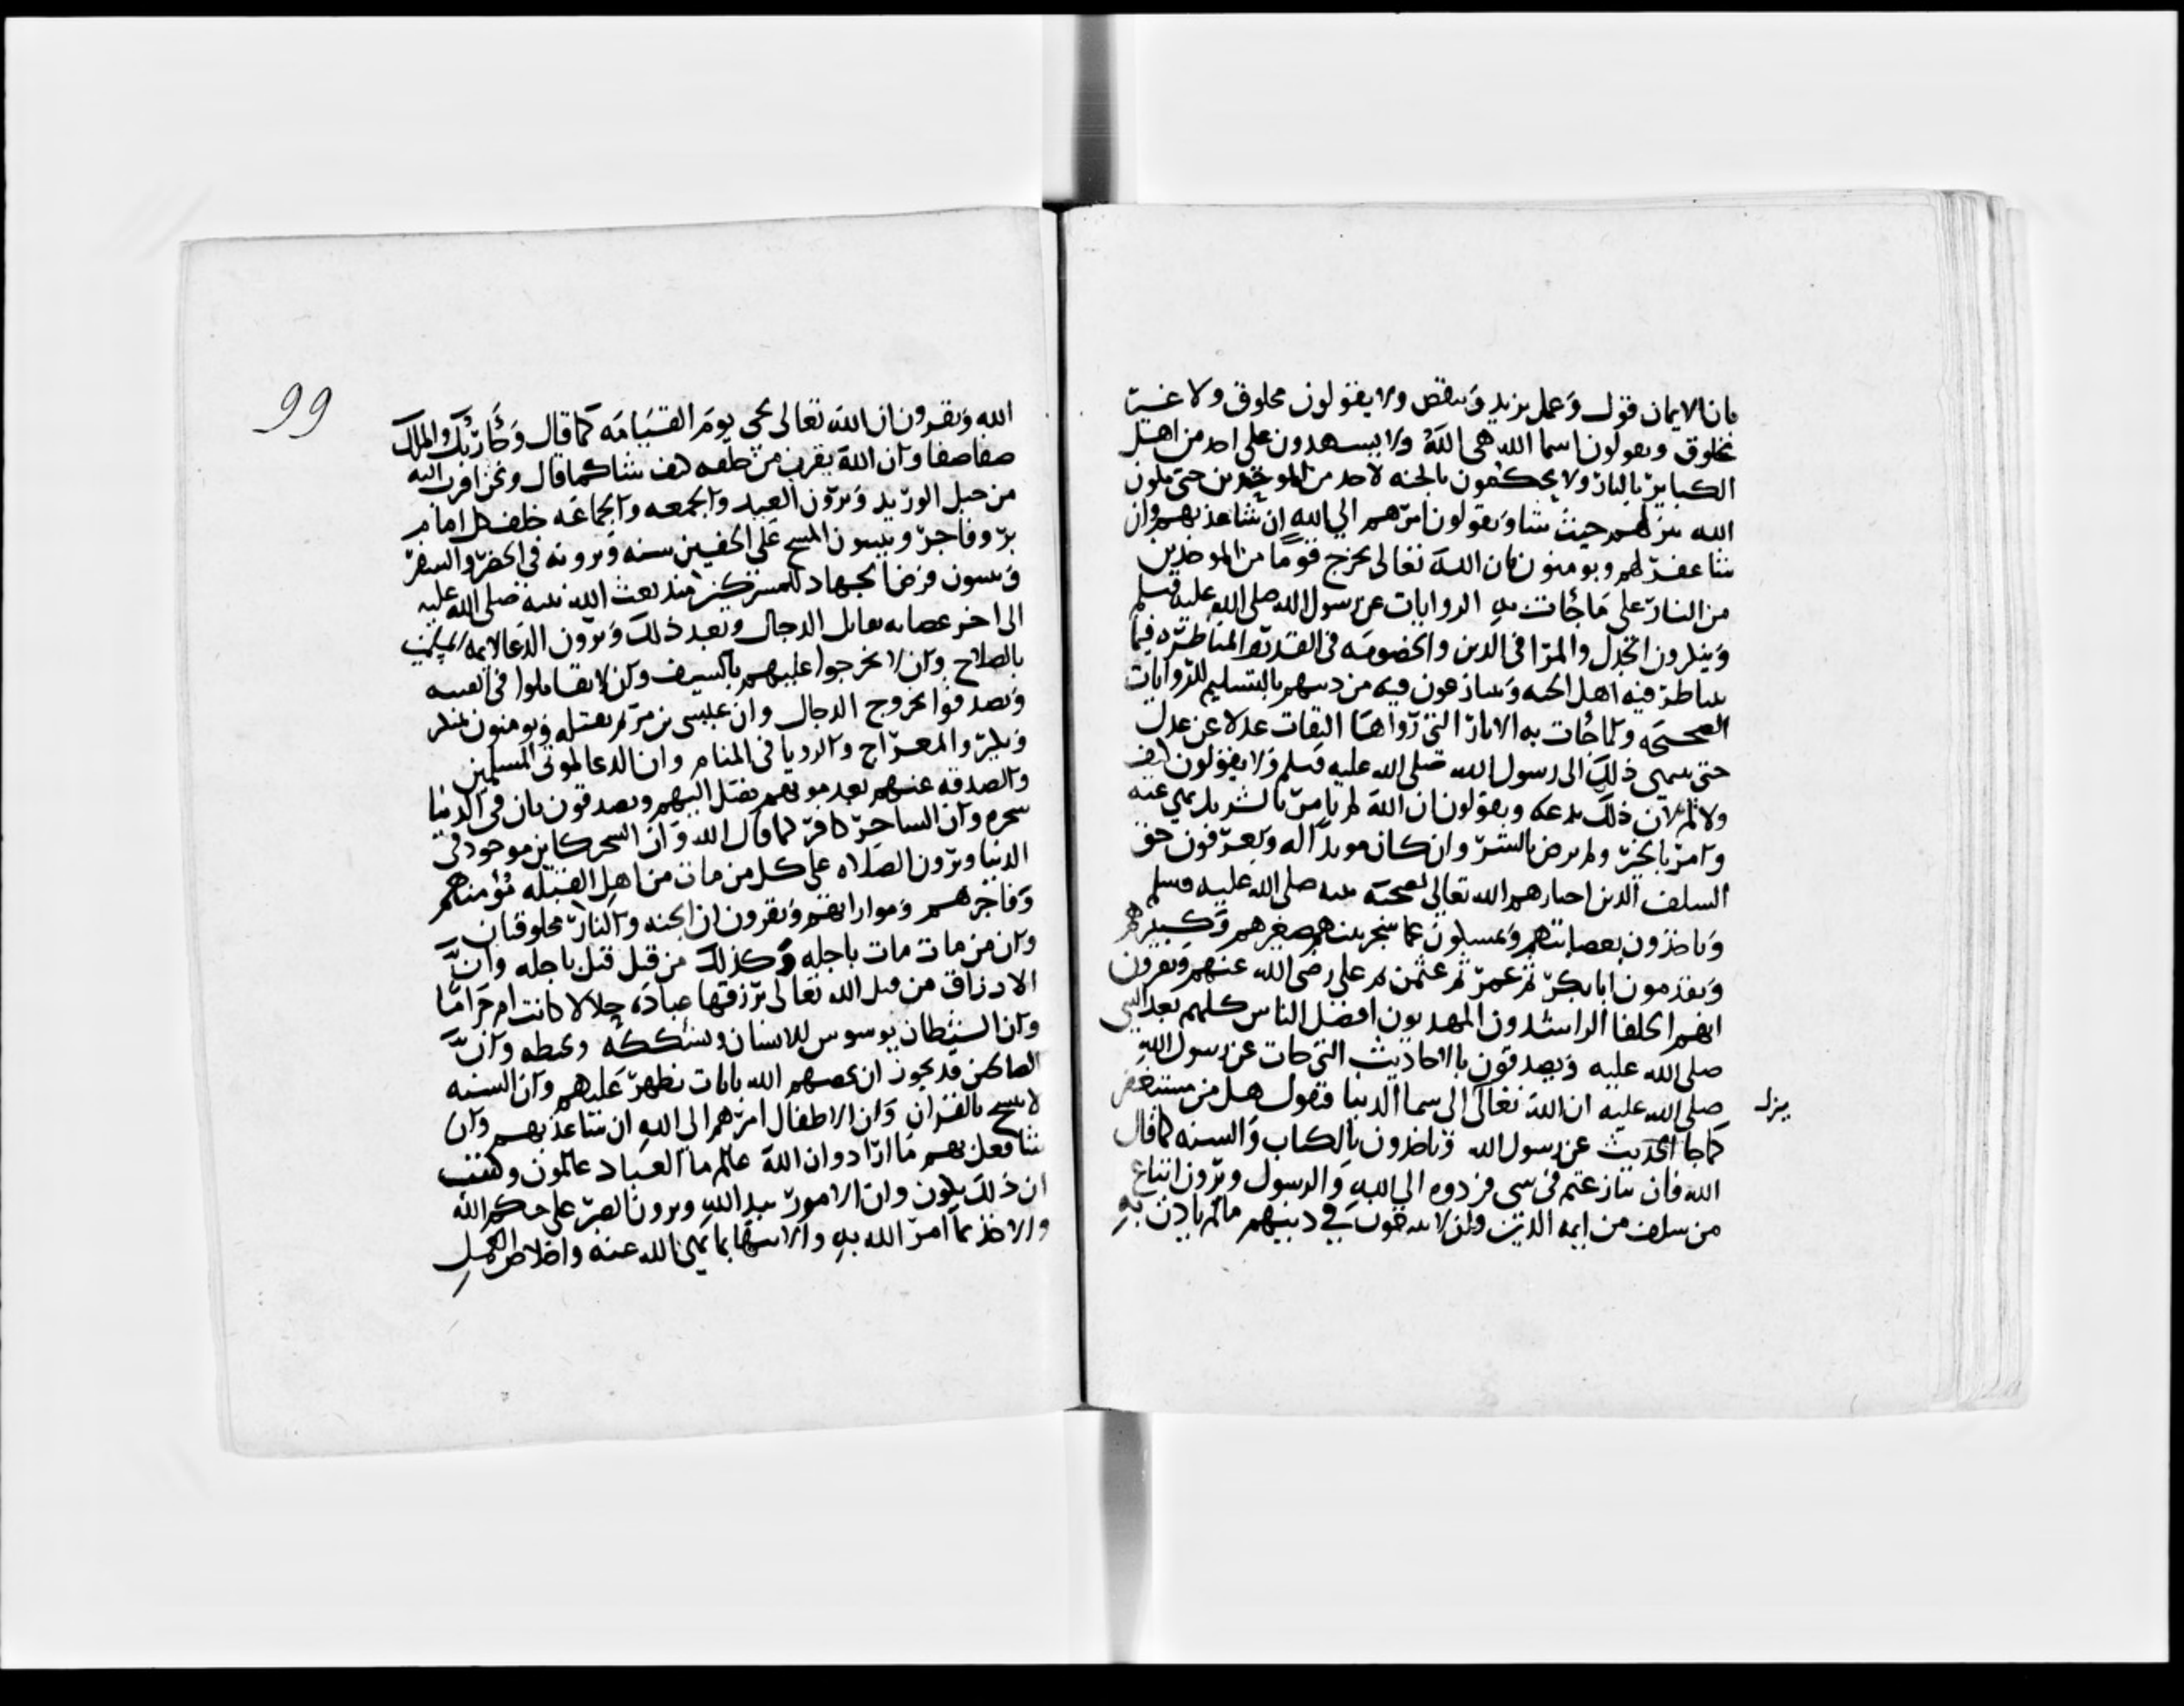 بان الايمان قول وعمل يزيد وينقص ولا يقولون مخلوق ولا غير
مخلوق ويقولون اسما الله هي الله ولا يشهدون على احد من اهل
الكباير بالنار ولا يحكمون بالجنه لاحد من الموحدين حتى يكون
الله ينزلهم حيث شا ويقولون امرهم الى الله ان شا عذبهم وان
شا غفر لهم ويومنون بان الله تعالى يخرج قوما من الموحدين
من النار على ما جات به الروايات عن رسول الله صلى الله عليه وسلم
وينكرون الجدل والمرا في الدين والخصومه في القدر والمناظره فيما
يتناظر فيه اهل الجدل ويتنازعون فيه من دينهم بالتسليم للروايات
الصحيحه ولما جات به الاثار التي رواها الثقات عدلا عن عدل
حتى ينتهي ذلك الى رسول الله صلى الله عليه وسلم ولا يقولون كيف
ولا لم لان ذلك بدعه ويقولون ان الله لم يامر بالشر بل نهى عنه
وامر بالخير ولم يرض بالشر وان كان مريدا له ويعرفون حق
السلف الذين اختارهم الله تعالى لصحبة نبيه صلى الله عليه وسلم
وياخذون بفضايلهم ويمسكون عما شجر بينهم صغيرهم وكبيرهم
ويقدمون ابا بكر ثم عمر ثم عثمن ثم علي رضي الله عنهم ويقرون
انهم الخلفا الراشدون المهديون افضل الناس كلهم بعد النبي
صلى الله عليه ويصدقون بالاحاديث التي جات عن رسول الله
صلى الله عليه ان الله تعالى الى سما الدنيا فيقول هل من مستغفر
ينزل
كما جا الحديث عن رسول الله وياخذون بالكتاب والسنه كما قال
الله فان تنازعتم في شي فردوه الى الله والرسول ويرون اتباع
من سلف من ايمه الدين وان لا يبتدعون في دينهم ما لم ياذن به
99
الله ويقرون ان الله تعالى يجي يوم القيامه كما قال وجا ربك والملك
صفا صفا وان الله يقرب من خلقه كيف شا كما قال ونحن اقرب اليه
من حبل الوريد ويرون العيد والجمعه والجماعه خلف كل امام
بر وفاجر ويثبتون المسح على الخفين سنه ويرونه في الحضر والسفر
ويثبتون فرض الجهاد للمشركين منذ بعث الله نبيه صلى الله عليه
الى اخر عصابه تقاتل الدجال وبعد ذلك ويرون الدعا لايمة المسلمين
بالصلاح وان لا يخرجوا عليهم بالسيف وان لا يقاتلوا في الفتنه
ويصدقوا بخروج الدجال وان عيسى بن مريم يقتله ويومنون بمنكر
ونكير والمعراج والرويا في المنام وان الدعا لموتى المسلمين
والصدقه عنهم بعد موتهم تصل اليهم ويصدقون بان في الدنيا
سحره وان الساحر كافر كما قال الله وان السحر كاين موجود في
الدنيا ويرون الصلاه على كل من مات من اهل القبله مؤمنهم
وفاجرهم وموارثتهم ويقرون ان الجنه والنار مخلوقتان
وان من مات مات باجله وكذلك من قتل قتل باجله وان
الارزاق من قبل الله تعالى يرزقها عباده حلالا كانت ام حراما
وان الشيطان يوسوس للانسان ويشككه ويخبطه وان
الصالحين قد يجوز ان يخصهم الله بايات تظهر عليهم وان السنه
لا تنسخ بالقران وان الاطفال امرهم الى الله ان شا عذبهم وان
شا فعل بهم ما اراد وان الله عالم ما العباد عاملون وكتب
ان ذلك يكون وان الامور بيد الله ويرون الصبر على حكم الله
والاخذ بما امر الله به والانتها بما نهى الله عنه واخلاص العمل